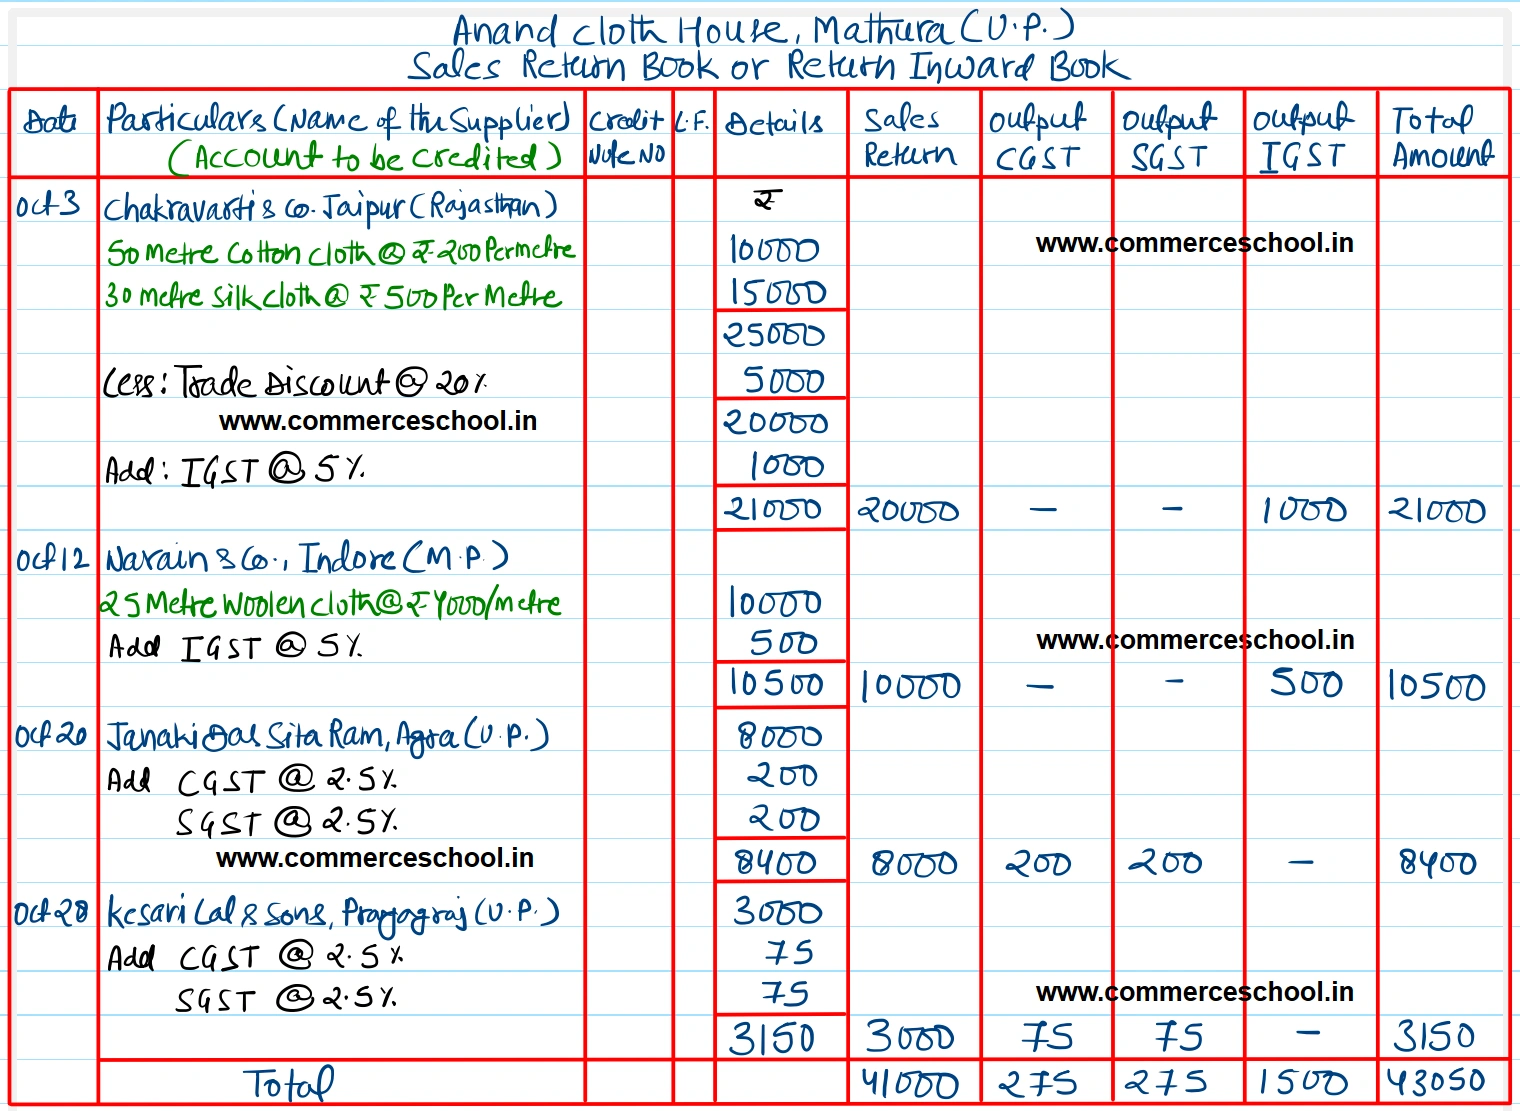 Anand Cloth House, Mathura (U.P.)
Sales Return Book or Return Inward Book
Date Particulars (Name of the Supplier) Credit L.F. Details Sales Output Output Output Total
(Account to be credited) Note No Return CGST SGST IGST Amount
Oct 3 Chakravarti & Co. Jaipur (Rajasthan) ₹
50 Metre Cotton Cloth @ ₹200 Per metre 10000 www.commerceschool.in
30 Metre Silk Cloth @ ₹500 Per Metre 15000
25000
Less: Trade Discount @ 20% 5000
www.commerceschool.in 20000
Add: IGST @ 5% 1000
21000 20000 – – 1000 21000
Oct 12 Narain & Co., Indore (M.P.)
25 Metre Woolen Cloth @ ₹4000/metre 10000
Add IGST @ 5% 500 www.commerceschool.in
10500 10000 – – 500 10500
Oct 20 Janaki Das Sita Ram, Agra (U.P.) 8000
Add CGST @ 2.5% 200
SGST @ 2.5% 200
www.commerceschool.in 8400 8000 200 200 – 8400
Oct 28 Kesari Lal & Sons, Prayagraj (U.P.) 3000
Add CGST @ 2.5% 75
SGST @ 2.5% 75 www.commerceschool.in
3150 3000 75 75 – 3150
Total 41000 275 275 1500 43050